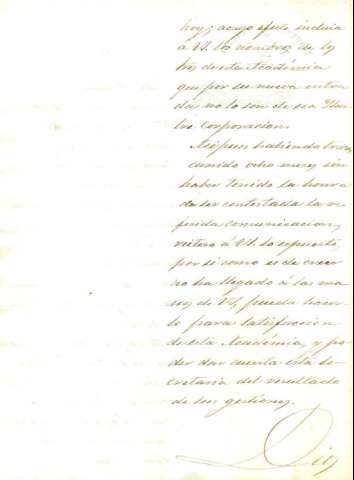 hoy; a cuyo efecto incluia
á VI. los nombres de los
tros de esta Academia
que por su nueva entra
da no lo son de esa Ilus
tre Corporacion.
Asi pues habiendo trans
currido ocho meses sin
haber tenido la honra
de ser contestada la re
ferida comunicacion,
reitero á VI. lo espuesto,
por si como es de creer
no ha llegado á las ma
nos de VI, pueda hacer
lo para satisfaccion
de esta Academia, y po
der dar cuenta esta se
cretaria del resultado
de sus gestiones.
Dios